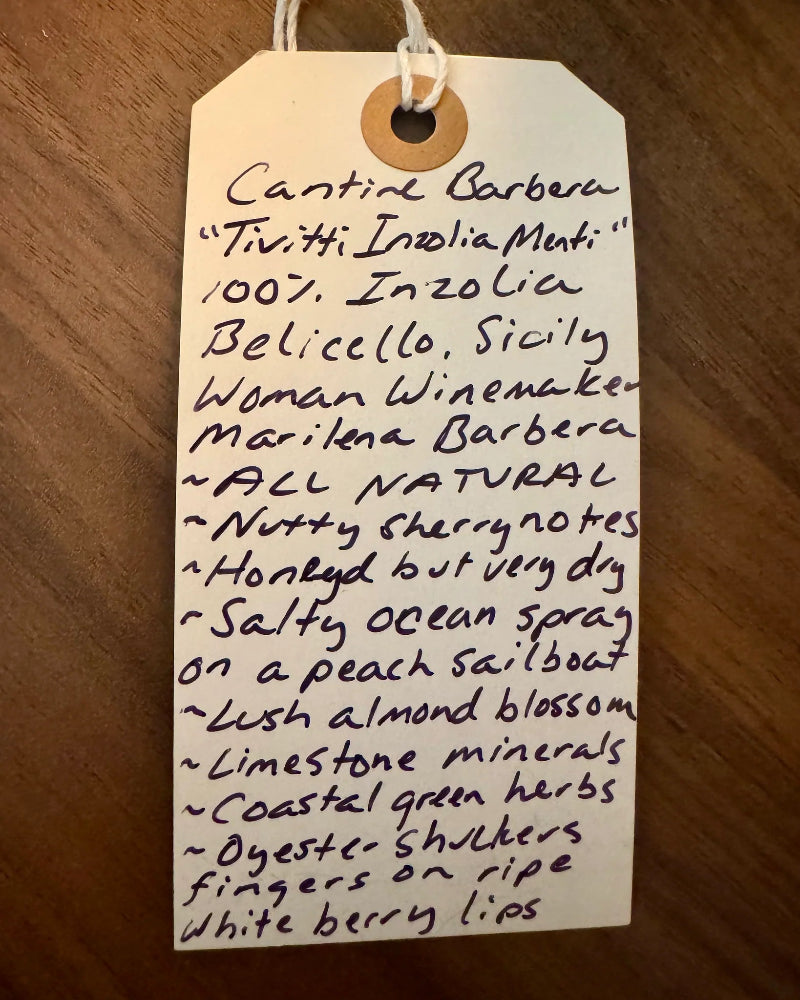 Cantine Barbera
"Tivitti Inzolia Menti"
100% Inzolia
Belicello, Sicily
Woman Winemaker
Marilena Barbera
~ALL NATURAL
~Nutty sherry notes
~Honeyd but very dry
~Salty ocean spray
on a peach sailboat
~Lush almond blossom
~Limestone minerals
~Coastal green herbs
~Oyester shuckers
fingers on ripe
white berry lips